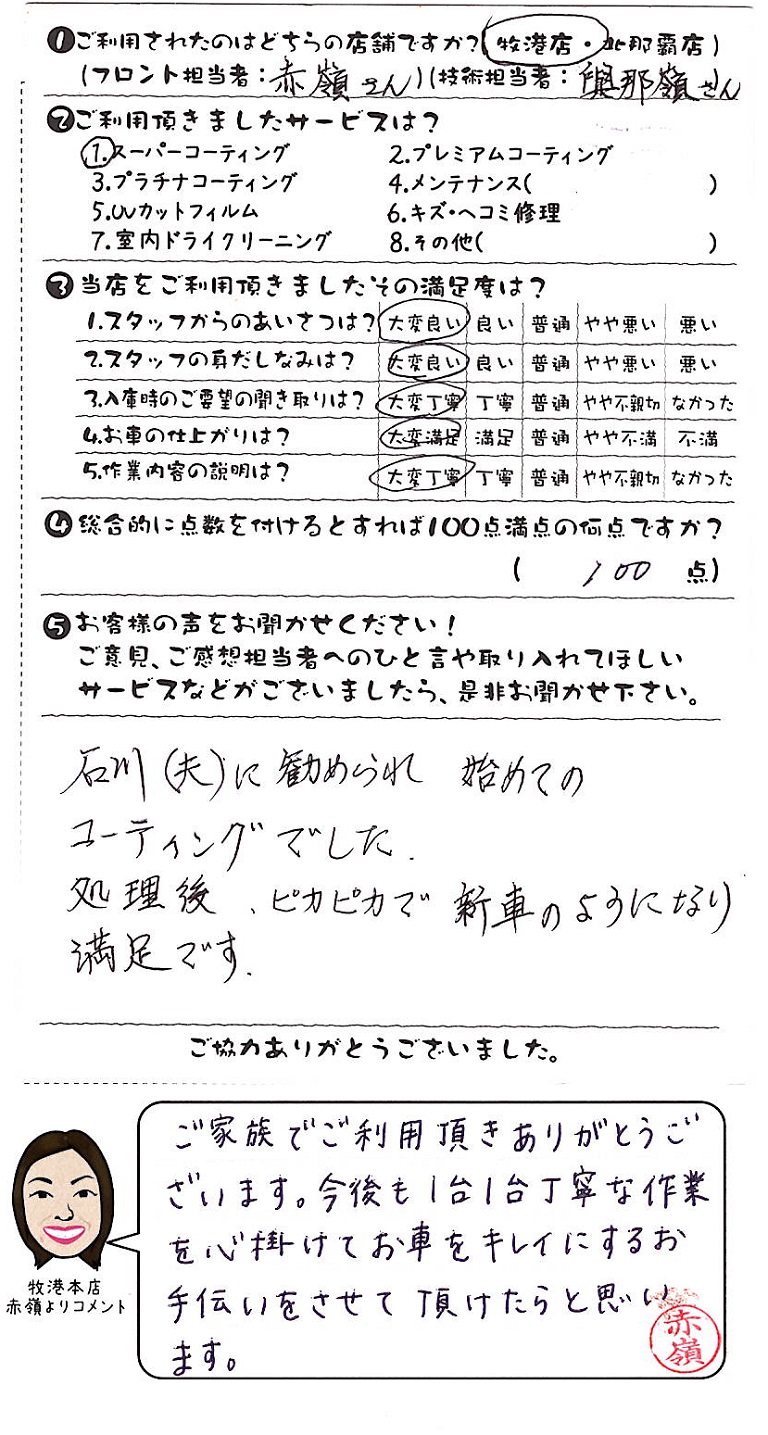 ❶ご利用されたのはどちらの店舗ですか?(牧港店・北那覇店)
(フロント担当者:赤嶺さん)(技術担当者:與那嶺さん
❷ご利用頂きましたサービスは?
1.スーパーコーティング 2.プレミアムコーティング
3.プラチナコーティング 4.メンテナンス( )
5.UVカットフィルム 6.キズ・ヘコミ修理
7.室内ドライクリーニング 8.その他( )
❸当店をご利用頂きましたその満足度は?
1.スタッフからのあいさつは? 大変良い 良い 普通 やや悪い 悪い
2.スタッフの身だしなみは? 大変良い 良い 普通 やや悪い 悪い
3.入庫時のご要望の聞き取りは? 大変丁寧 丁寧 普通 やや不親切 なかった
4.お車の仕上がりは? 大変満足 満足 普通 やや不満 不満
5.作業内容の説明は? 大変丁寧 丁寧 普通 やや不親切 なかった
❹総合的に点数を付けるとすれば100点満点の何点ですか?
( 100 点)
❺お客様の声をお聞かせください!
ご意見、ご感想担当者へのひと言や取り入れてほしい
サービスなどがございましたら、是非お聞かせ下さい。
石川(夫)に勧められ 始めての
コーティングでした.
処理後、ピカピカで新車のようになり
満足です.
ご協力ありがとうございました。
ご家族でご利用頂きありがとうご
ざいます。今後も1台1台丁寧な作業
を心掛けてお車をキレイにするお
手伝いをさせて頂けたらと思い
ます。
赤嶺
牧港本店
赤嶺よりコメント